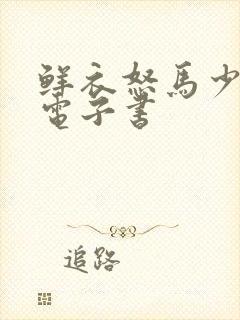 鲜衣怒马少
電子書
追路